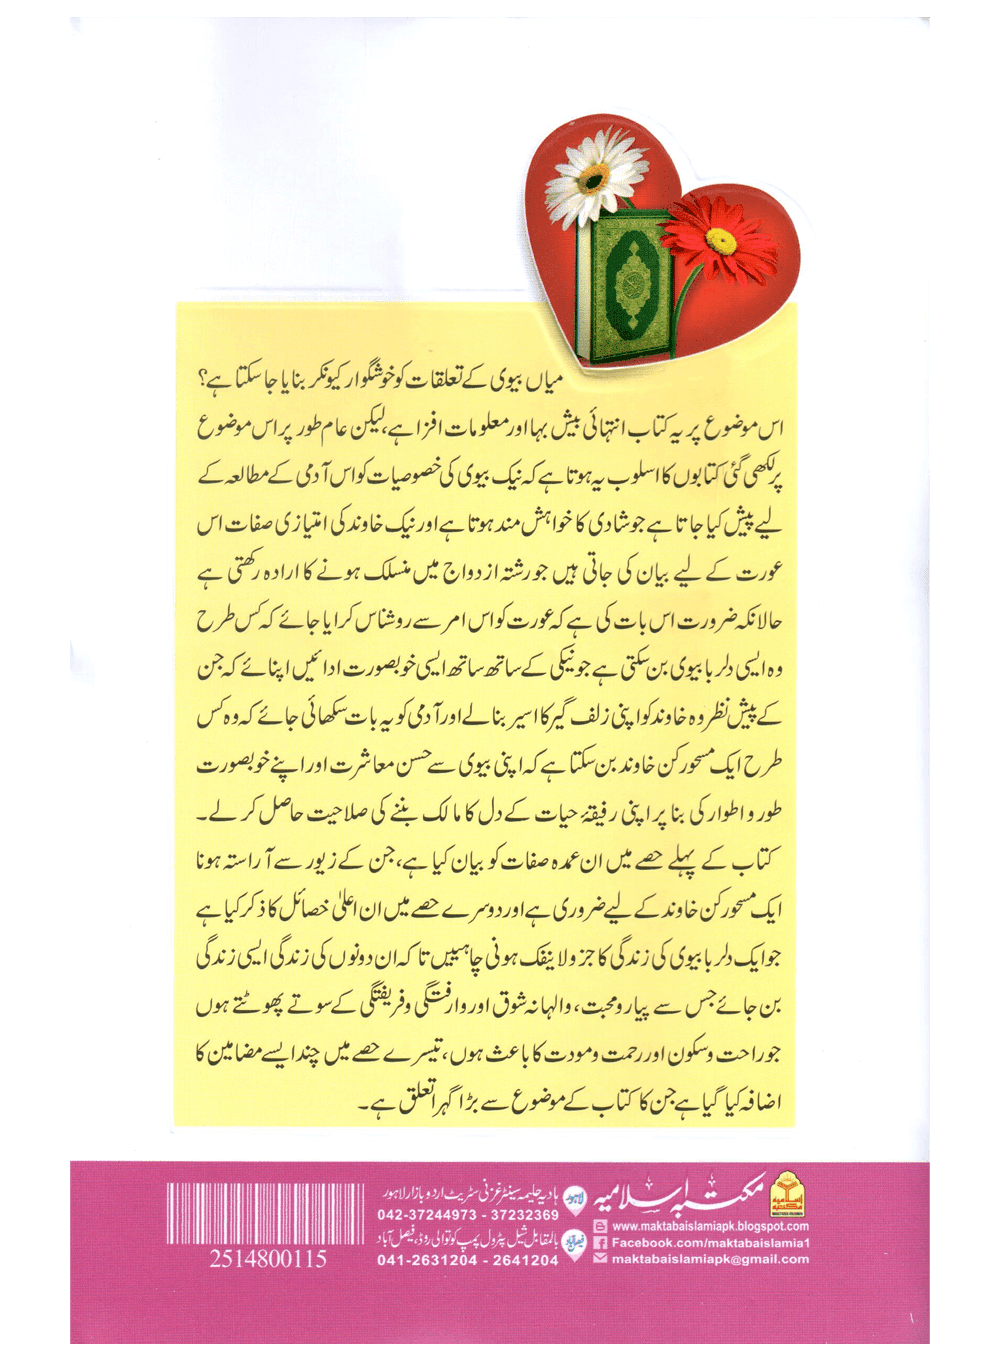 میاں بیوی کے تعلقات کو خوشگوار کیونکر بنایا جا سکتا ہے؟
اس موضوع پر یہ کتاب انتہائی بیش بہا اور معلومات افزا ہے، لیکن عام طور پر اس موضوع
پر لکھی گئی کتابوں کا اسلوب یہ ہوتا ہے کہ نیک بیوی کی خصوصیات کو اس آدمی کے مطالعہ کے
لیے پیش کیا جاتا ہے جو شادی کا خواہش مند ہوتا ہے اور نیک خاوند کی امتیازی صفات اس
عورت کے لیے بیان کی جاتی ہیں جو رشتہ ازدواج میں منسلک ہونے کا ارادہ رکھتی ہے
حالانکہ ضرورت اس بات کی ہے کہ عورت کو اس امر سے روشناس کرایا جائے کہ کس طرح
وہ ایسی دلربا بیوی بن سکتی ہے جو نیکی کے ساتھ ساتھ ایسی خوبصورت ادائیں اپنائے کہ جن
کے پیش نظر وہ خاوند کو اپنی زلف گیر کا اسیر بنا لے اور آدمی کو یہ بات سکھائی جائے کہ وہ کس
طرح ایک مسحور کن خاوند بن سکتا ہے کہ اپنی بیوی سے حسن معاشرت اور اپنے خوبصورت
طور و اطوار کی بنا پر اپنی رفیقۂ حیات کے دل کا مالک بننے کی صلاحیت حاصل کر لے۔
کتاب کے پہلے حصے میں ان عمدہ صفات کو بیان کیا ہے، جن کے زیور سے آراستہ ہونا
ایک مسحور کن خاوند کے لیے ضروری ہے اور دوسرے حصے میں ان اعلیٰ خصائل کا ذکر کیا ہے
جو ایک دلربا بیوی کی زندگی کا جزو لاینفک ہونی چاہییں تاکہ ان دونوں کی زندگی ایسی زندگی
بن جائے جس سے پیار و محبت، والہانہ شوق اور وارفتگی و فریفتگی کے سوتے پھوٹتے ہوں
جو راحت و سکون اور رحمت و مودت کا باعث ہوں، تیسرے حصے میں چند ایسے مضامین کا
اضافہ کیا گیا ہے جن کا کتاب کے موضوع سے بڑا گہرا تعلق ہے۔
مکتبہ اسلامیہ
www.maktabaislamiapk.blogspot.com
Facebook.com/maktabaislamia1
maktabaislamiapk@gmail.com
لاہور
ہادیہ حلیمہ سینٹر غزنی سٹریٹ اردو بازار لاہور
042-37244973 - 37232369
فیصل آباد
بالمقابل شیل پٹرول پمپ کوتوالی روڈ، فیصل آباد
041-2631204 - 2641204
2514800115